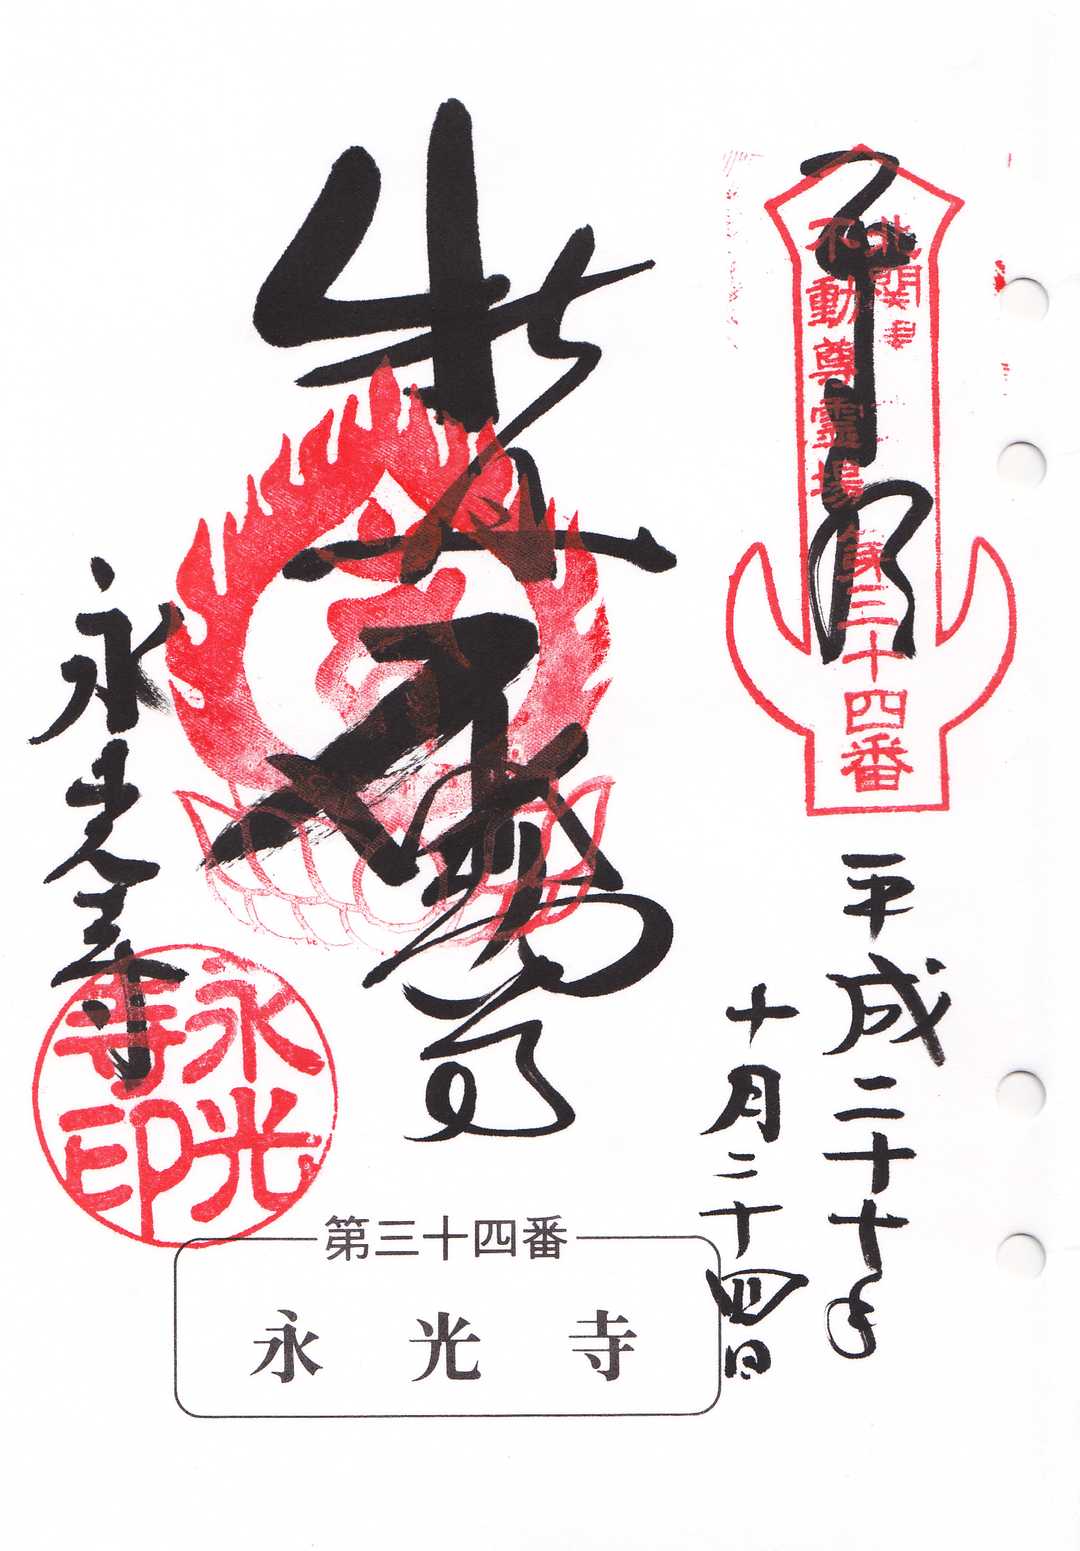 奉拝
北関東
不動尊霊場
第三十四番
平成二十七年
十月二十四日
不動尊
永光寺
永光
寺印
第三十四番
永光寺